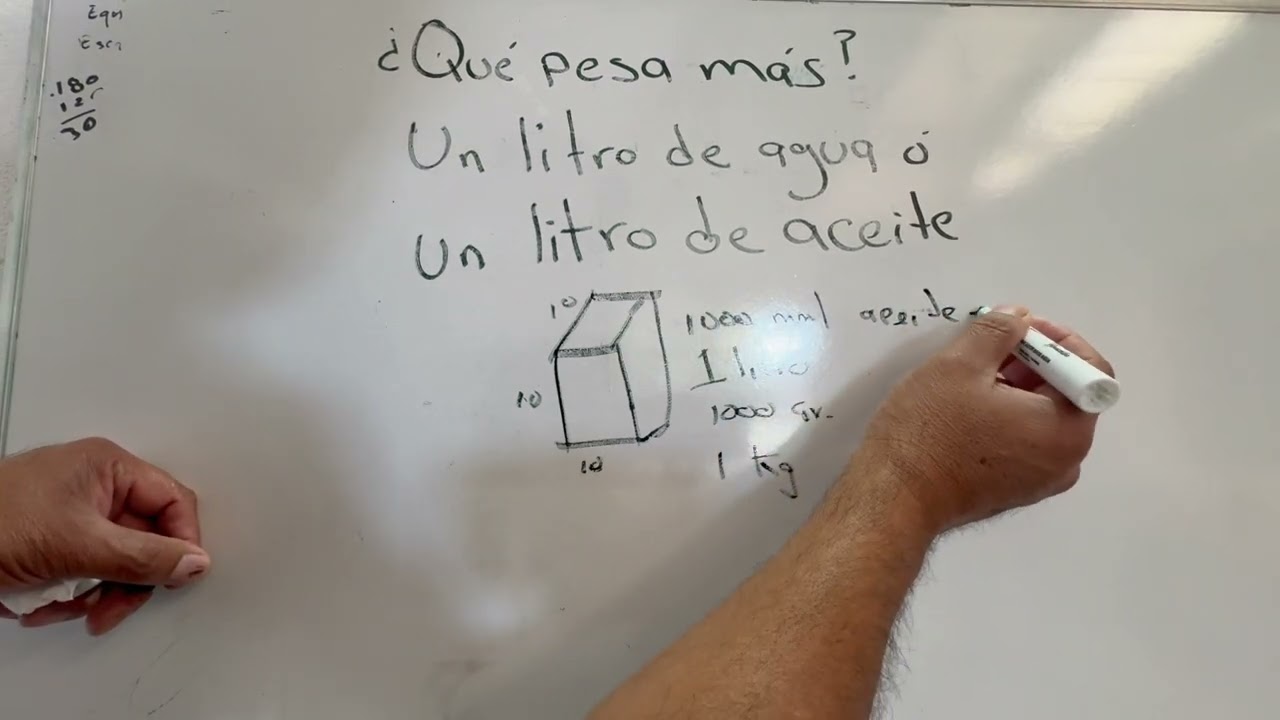 ¿Qué pesa más?
Un litro de agua ó
un litro de aceite
10
10
10
1000 mml aceite
1 litro
1000 Gr.
1 kg
180
30